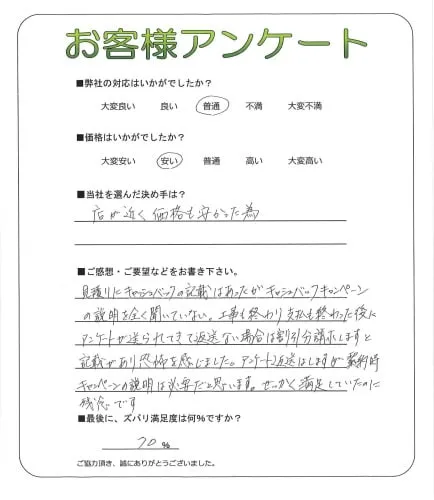 お客様アンケート
■弊社の対応はいかがでしたか?
大変良い 良い 普通 不満 大変不満
■価格はいかがでしたか?
大変安い 安い 普通 高い 大変高い
■当社を選んだ決め手は?
店が近く価格も安かった為
■ご感想・ご要望などをお書き下さい。
見積りにキャッシュバックの記載はあったがキャッシュバックキャンペーン
の説明を全く聞いていない。工事も終わり支払も終わった後に
アンケートが送られてきて返送ない場合は割引分請求しますと
記載があり恐怖を感じました。アンケート返送はしますが契約時
キャンペーンの説明は必要だと思います。せっかく満足していたのに
残念です
■最後に、ズバリ満足度は何%ですか?
70 %
ご協力頂き、誠にありがとうございました。